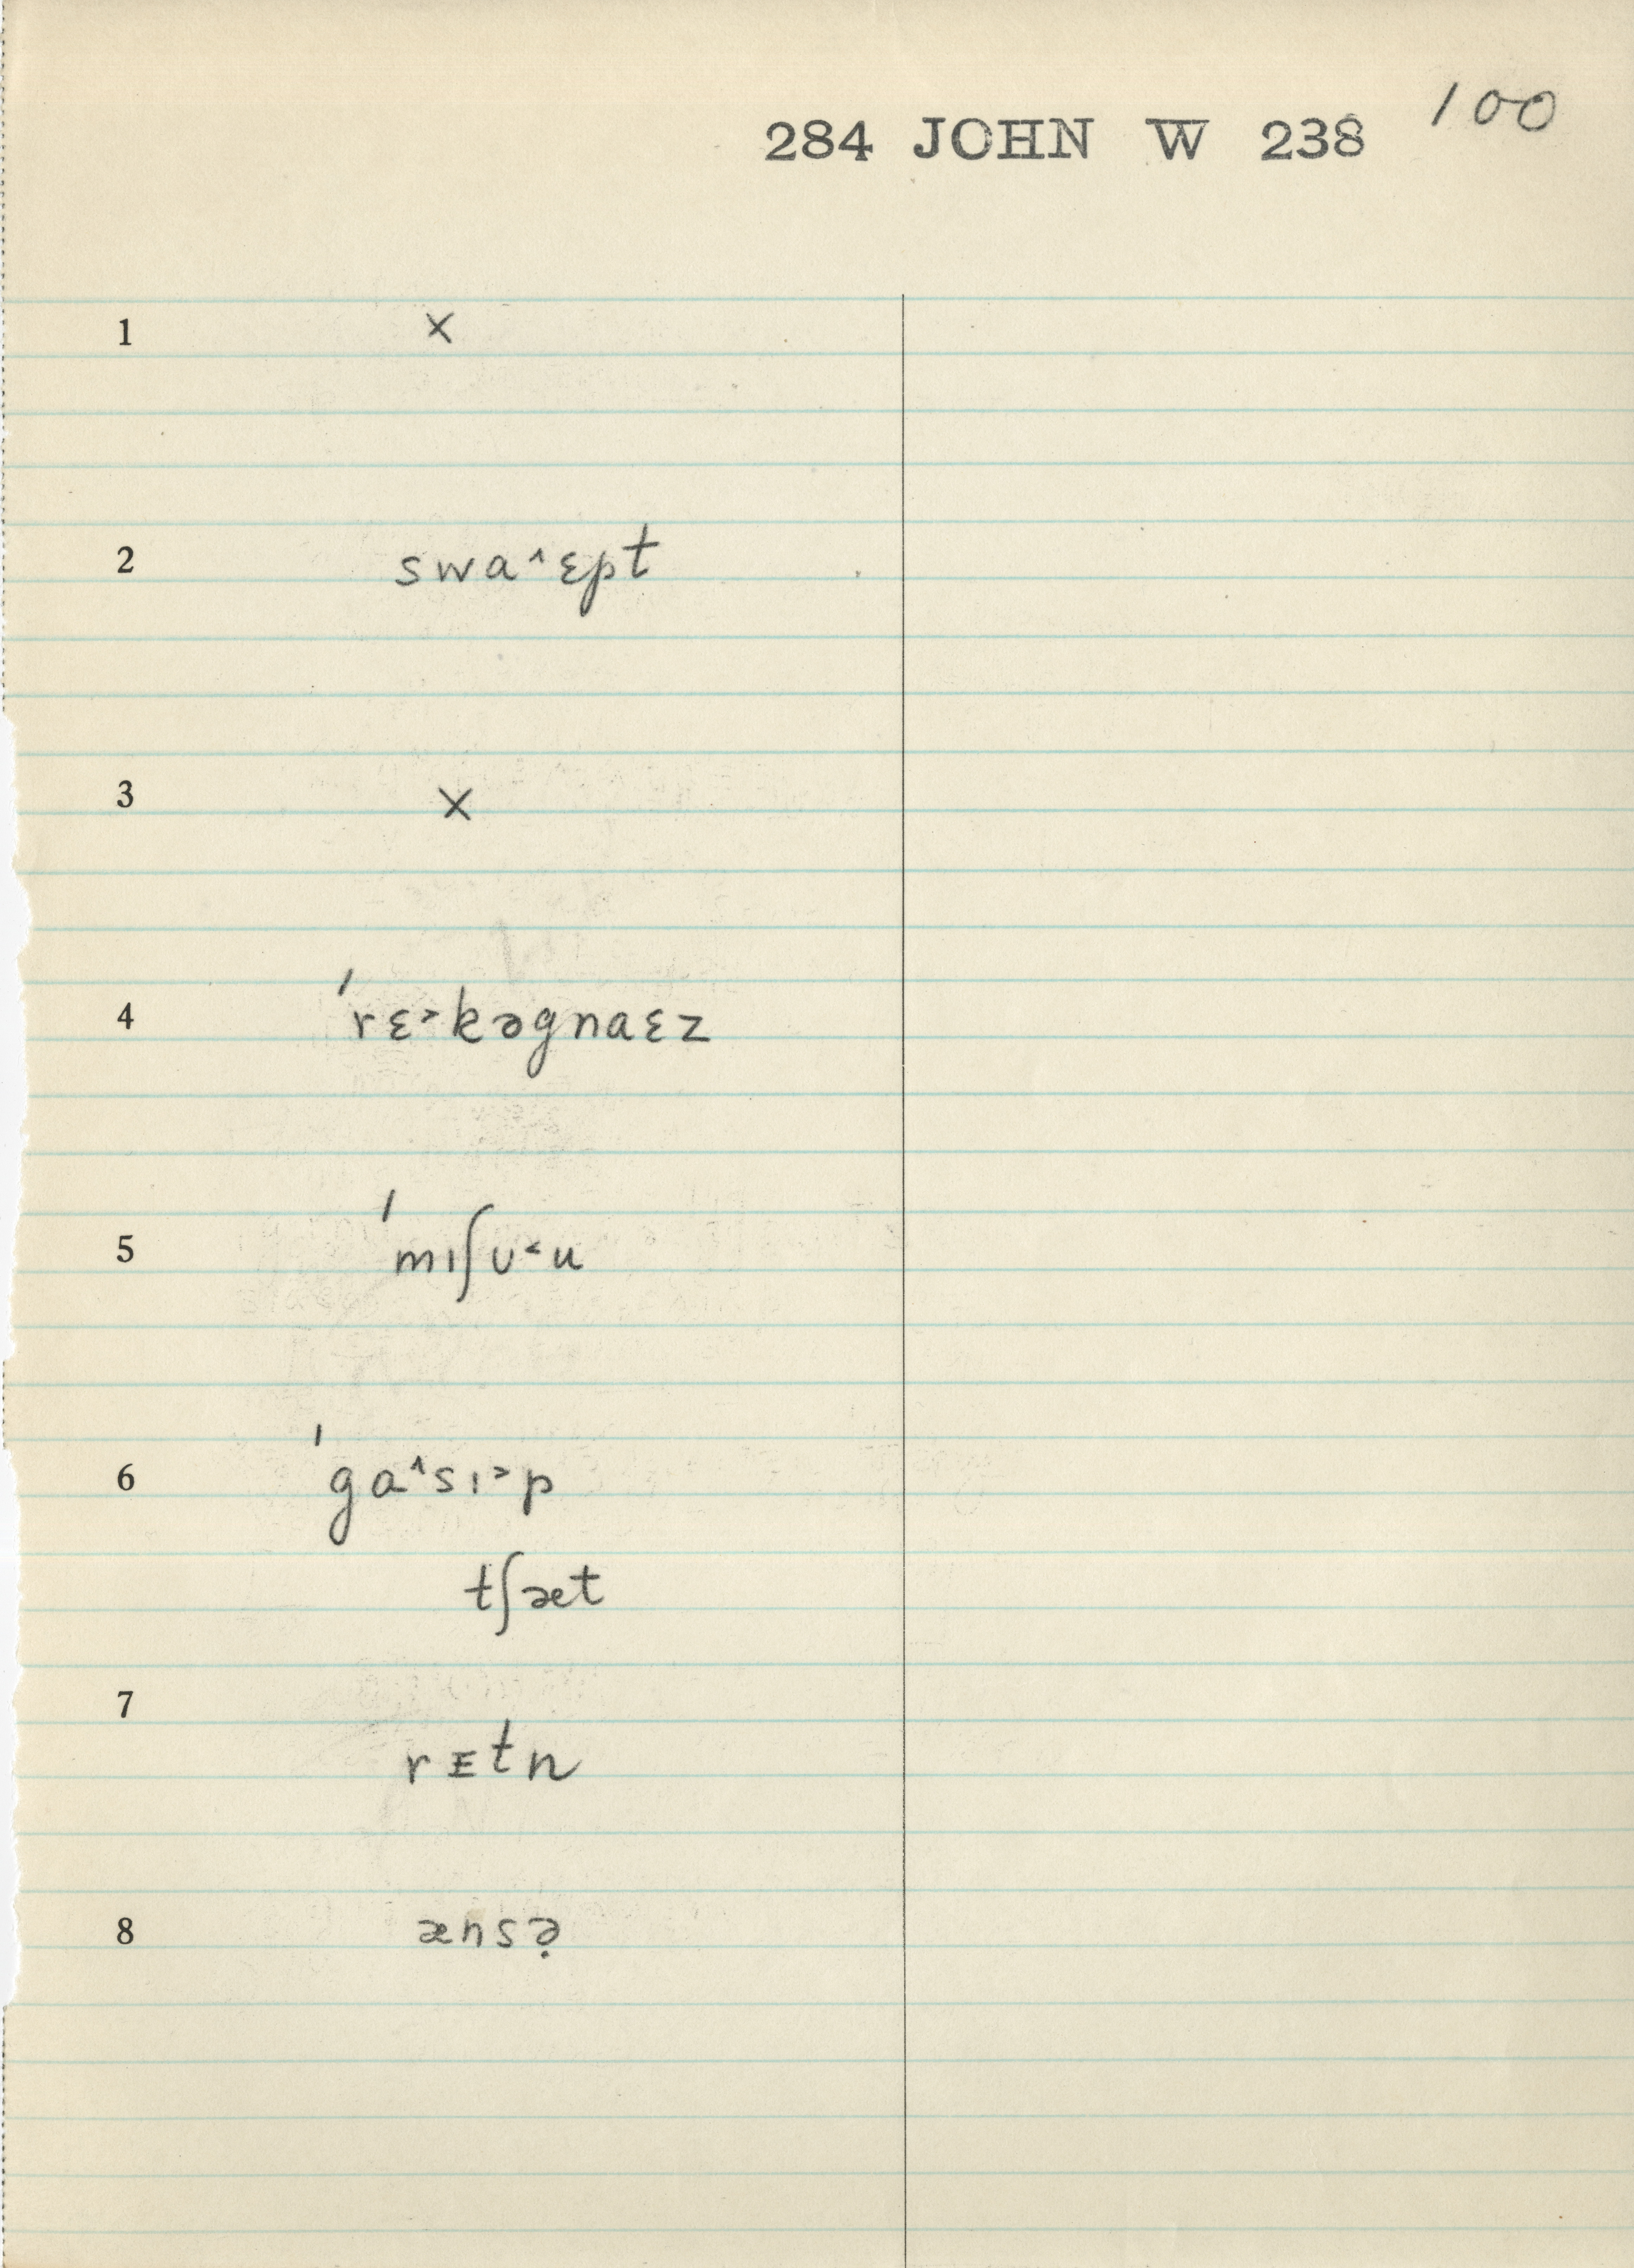 284 JOHN W 238 100
1 ×
2 swa˄ɛpt
3 ×
4 ˈrɛ˃kəgnaɛz
5 ˈmɪʃʊ˂u
6 ˈga˄sɪ˃p
tʃæt
7
rᴇtn
8 ænsə̣